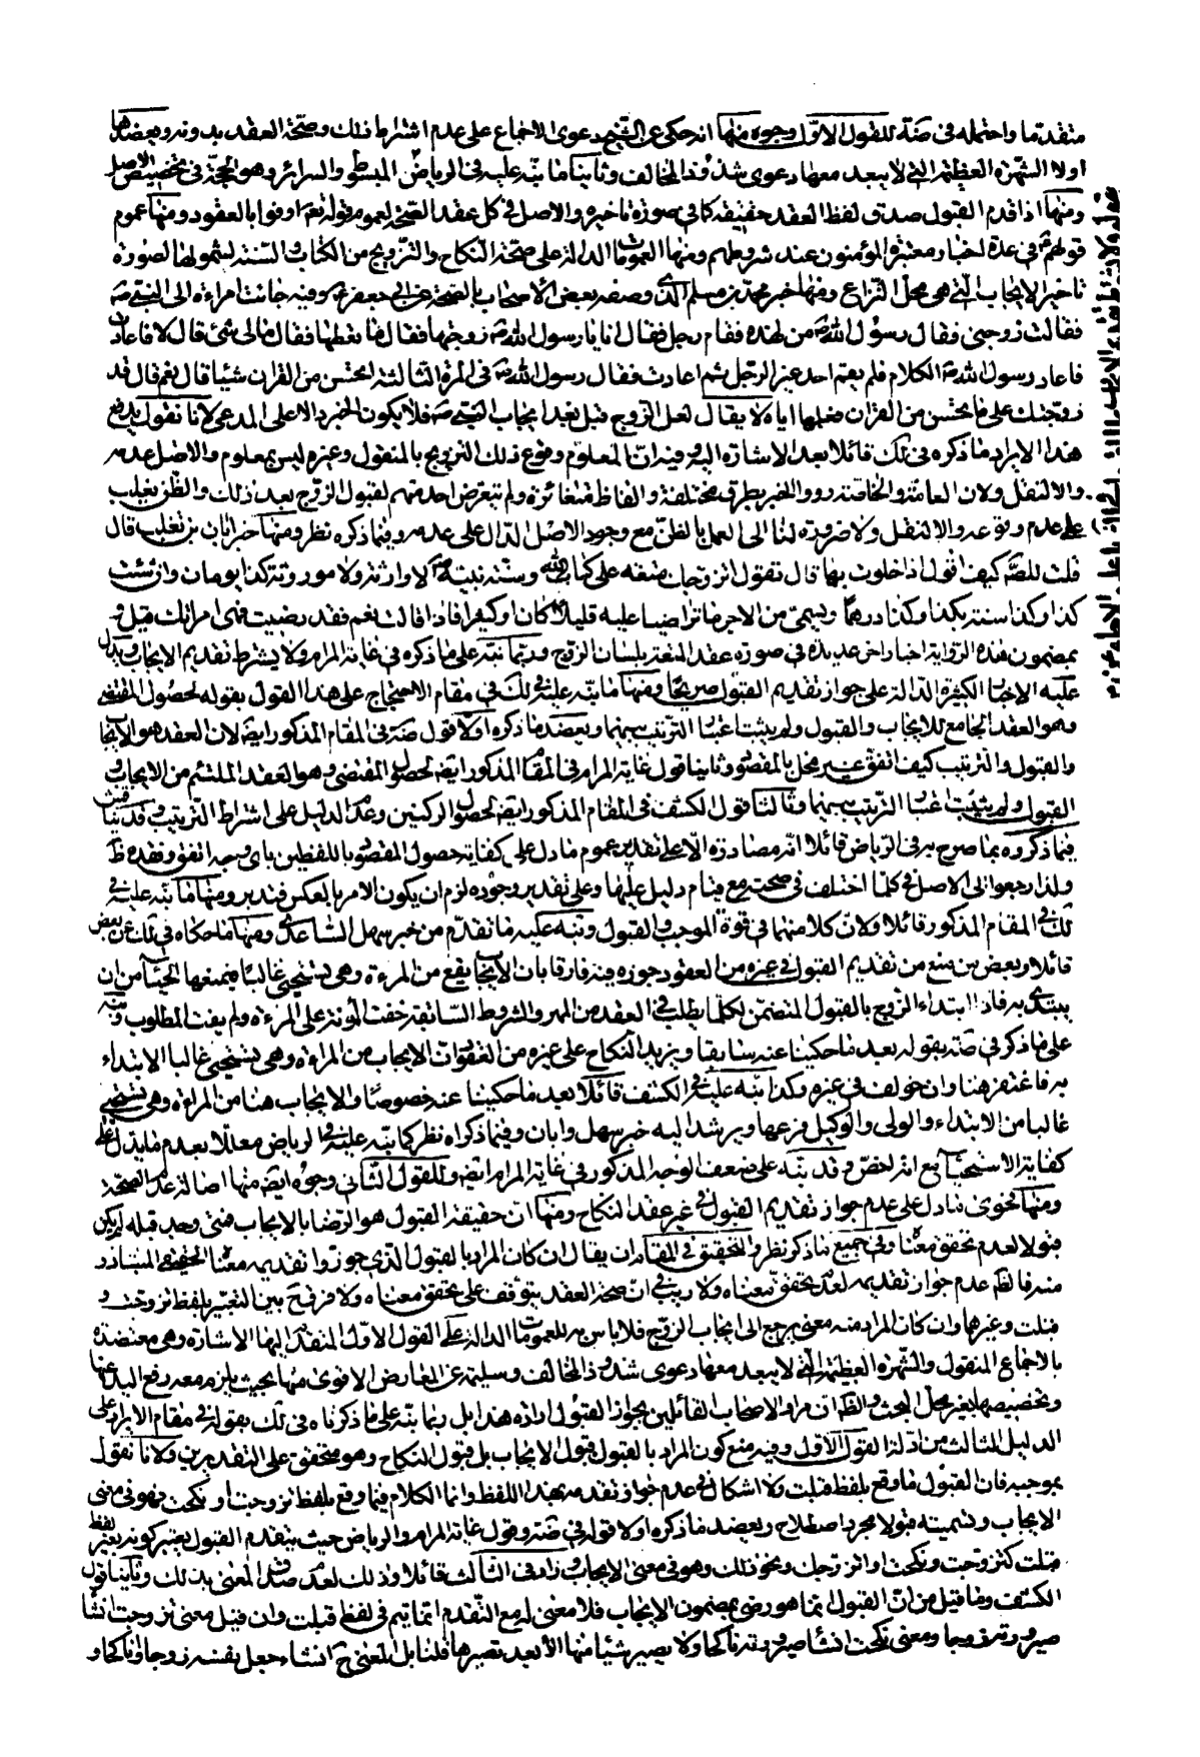 متقدما واحتمله فى ضه للقول الاول وجوه منها انه حكى عن الشيخ دعوى الاجماع على عدم اشتراط ذلك وصحة العقد بدونه ويعضدها
اولا الشهرة العظيمة التى لا يبعد معها دعوى شذوذ المخالف وثانيا ما نبه عليه فى الرياض المبسوط والسرائر وهو الحجة فى تخصيص الاصل
ومنها اذا قدم القبول صدق لفظ العقد حقيقة كما فى صورة تاخيره والاصل فى كل عقد الصحة لعموم قوله تعم اوفوا بالعقود ومنها عموم
قولهم فى عدة اخبار معتبرة المؤمنون عند شروطهم ومنها العمومات الدالة على صحة النكاح والتزويج من الكتاب والسنة لشمولها لصورة
تاخير الايجاب التى هى محل النزاع ومنها خبر محمد بن مسلم الذى وصفه بعض الاصحاب بالصحة عن ابى جعفر ع وفيه جائت امراءة الى النبى ص
فقالت زوجنى فقال رسول الله ص من لهذه فقام رجل فقال انا يا رسول الله ص زوجنيها فقال ما تعطيها فقال مالى شئ قال لا فاعادت
فاعاد رسول الله ص الكلام فلم يقم احد غير الرجل ثم اعادت فقال رسول الله ص فى المرة الثالثة اتحسن من القران شيئا قال نعم قال قد
زوجتك على ما تحسن من القران فعلمها اياه لا يقال لعل الزوج قبل بعد ايجاب النبى ص فلا يكون الخبر دالا على المدعى لانا نقول يدفع
هذا الايراد ما ذكره فى لك قائلا بعد الاشارة اليه وفيه ان المعلوم وقوع ذلك التزويج بالمنقول وغيره ليس بمعلوم والاصل عدمه
والا لنقل ولان العامة والخاصة رووا الخبر بطرق مختلفة والفاظ متغائرة ولم يتعرض احد منهم لقبول الزوج بعد ذلك والظن يغلب
على عدم وقوعه والا لنقل ولا ضرورة لنا الى العمل بالظن مع وجود الاصل الدال على عدمه وفيما ذكره نظر ومنها خبر ابان بن تغلب قال
قلت للصم كيف اقول اذا خلوت بها قال تقول اتزوجك متعة على كتاب الله وسنة نبيه ص لا وارثة ولا موروثة كذا يوما وان شئت
كذا وكذا سنة بكذا وكذا درهما وتسمى من الاجر ما تراضيا عليه قليلا كان او كثيرا فاذا قالت نعم فقد رضيت فهى امراتك قيل و
بمضمون هذه الرواية اخبار اخر عديدة فى صورة عقد المتعة بلسان الزوج وربما نبه على ما ذكره فى غاية المرام ولا يشترط تقديم الايجاب ويدل
عليه الاخبار الكثيرة الدالة على جواز تقديم القبول صريحا ومنها ما نبه عليه فى لك فى مقام الاحتجاج على هذا القول بقوله لحصول المقتضى
وهو العقد الجامع للايجاب والقبول ولم يثبت اعتبار الترتيب بينهما ويعضد ما ذكره اولا قول ضه فى المقام المذكور ايضا لان العقد هو الايجاب
والقبول والترتيب كيف اتفق غير مخل بالمقصود وثانيا قول غاية المرام فى المقام المذكور ايضا لحصول المقتضى وهو العقد الملتئم من الايجاب و
القبول ولم يثبت اعتبار الترتيب بينهما وثالثا قول الكشف فى المقام المذكور ايضا لحصول الركنين وعدم الدليل على اشتراط الترتيب وقد يناقش
فيما ذكروه بما صرح به فى الرياض قائلا انه مصادرة الا على تقدير عموم ما دل على كفاية حصول المقصود باللفظين باى وجه اتفق وفقده ظ
ولذا رجعوا الى الاصل فى كلما اختلف فى صحته مع قيام دليل عليها وعلى تقدير وجوده لزم ان يكون الامر بالعكس فتدبر ومنها ما نبه عليه فى
لك فى المقام المذكور قائلا ولان كلا منهما فى قوة الموجب والقبول ونبه عليه ما تقدم من خبر سهل الساعدى ومنها ما حكاه فى لك عن بعض
قائلا وبعض من منع من تقديم القبول فى غيره من العقود جوزه فيه فارقا بان الايجاب يقع من المرءة وهى تستحيى غالبا فيمنعها الحياء من ان
يبتدى به فاذا ابتداء الزوج بالقبول المتضمن لكلما يطلب فى العقد من المهر والشروط السائغة خفت المؤنة على المرءة ولم يفت المطلوب ونبه
على ما ذكر فى ضه بقوله بعد ما حكينا عنه سابقا ويزيد النكاح على غيره من العقود ان الايجاب من المراءة وهى تستحيى غالبا الابتداء
به فاغتفر هنا وان خولف فى غيره وكذا نبه عليه فى الكشف قائلا بعد ما حكينا عنه خصوصا والايجاب هنا من المراءة وهى تستحيى
غالبا من الابتداء والولى والوكيل فرعها ويرشد اليه خبر سهل وابان وفيما ذكراه نظر كما نبه عليه فى الرياض معللا بعدم ما يدل على
كفاية الاستحياء مع انه اخص وقد نبه على ضعف الوجه المذكور فى غاية المرام ايضا وللقول الثانى وجوه ايضا منها اصالة عدم الصحة
ومنها فحوى ما دل على عدم جواز تقديم القبول فى غير عقد النكاح ومنها ان حقيقة القبول هو الرضا بالايجاب فمتى وجد قبله لم يكن
قبولا لعدم تحقق معناه وفى جميع ما ذكر نظر والتحقيق فى المقام ان يقال ان كان المراد بالقبول الذى جوزوا تقديمه معناه الحقيقى المتبادر
منه فالظ عدم جواز تقديمه لعدم تحقق معناه ولا ريب فى ان صحة العقد يتوقف على تحقق معناه ولا فرق ح بين التعبير بلفظ تزوجت و
قبلت وغيرها وان كان المراد منه معنى يرجع الى ايجاب الزوج فلا باس به للعمومات الدالة على القول الاول المتقدم اليها الاشارة وهى معتضدة
بالاجماع المنقول والشهرة العظيمة التى لا يبعد معها دعوى شذوذ المخالف وسليمة عن المعارض الاقوى منها بحيث يلزم معه رفع اليد عنها
وتخصيصها بغير محل البحث والظ ان مراد الاصحاب القائلين بجواز القبول ارادة هذا بل ربما نبه على ما ذكرناه فى لك بقوله فى مقام الايراد على
الدليل الثالث من ادلة القول الاول وفيه منع كون المراد بالقبول قبول الايجاب بل قبول النكاح وهو متحقق على التقديرين ولانا نقول
بموجبه فان القبول ما وقع بلفظ قبلت ولا اشكال فى عدم جواز تقدمه بهذا اللفظ وانما الكلام فيما وقع بلفظ تزوجت او نكحت فهو فى معنى
الايجاب وتسميته قبولا مجرد اصطلاح ويعضد ما ذكره اولا قوله فى ضه وقول غاية المرام والرياض حيث يتقدم القبول يعتبر كونه بغير لفظ
قبلت كتزوجت ونكحت او اتزوجك ونحو ذلك وهو فى معنى الايجاب وزاد فى الثالث قائلا وذلك لعدم صدق المعنى بذلك وثانيا قول
الكشف وما قيل من ان القبول انما هو رضى بمضمون الايجاب فلا معنى له مع التقدم انما يتم فى لفظ قبلت وان قيل معنى تزوجت انشاء
صيرورته زوجا ومعنى نكحت انشاء صيرورته ناكحا ولا يصير شيئا منها الا بعد تصييرها قلنا بل المعنى ح انشاء جعل نفسه زوجا او ناكحا و